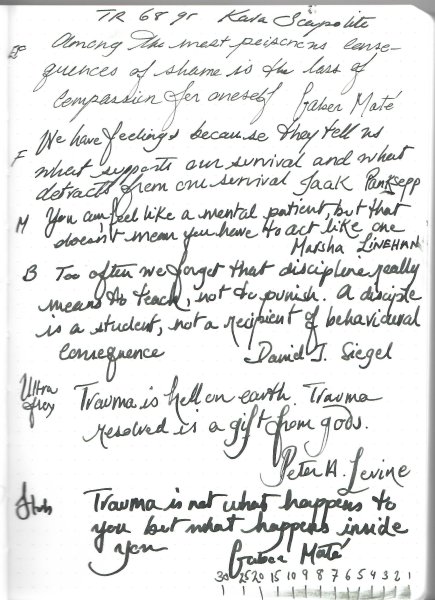 TR 68 gr Kara
EF Among the most poisonous conse-
quences of shame is the loss of
compassion for oneself Gabor Maté
F We have feelings because they tell us
what supports our survival and what
detracts from our survival Jaak Panksepp
M You can feel like a mental patient, but that
doesn't mean you have to act like one
Marsha LINEHAN
B Too often we forget that discipline really
means to teach, not to punish. A disciple
is a student, not a recipient of behavioural
consequence David J. Siegel
Ultra
flex
Trauma is hell on earth. Trauma
resolved is a gift from gods.
Peter A. Levine
Trauma is not what happens to
you but what happens inside
you Gabor Maté
30 25 20 15 10 9 8 7 6 5 4 3 2 1